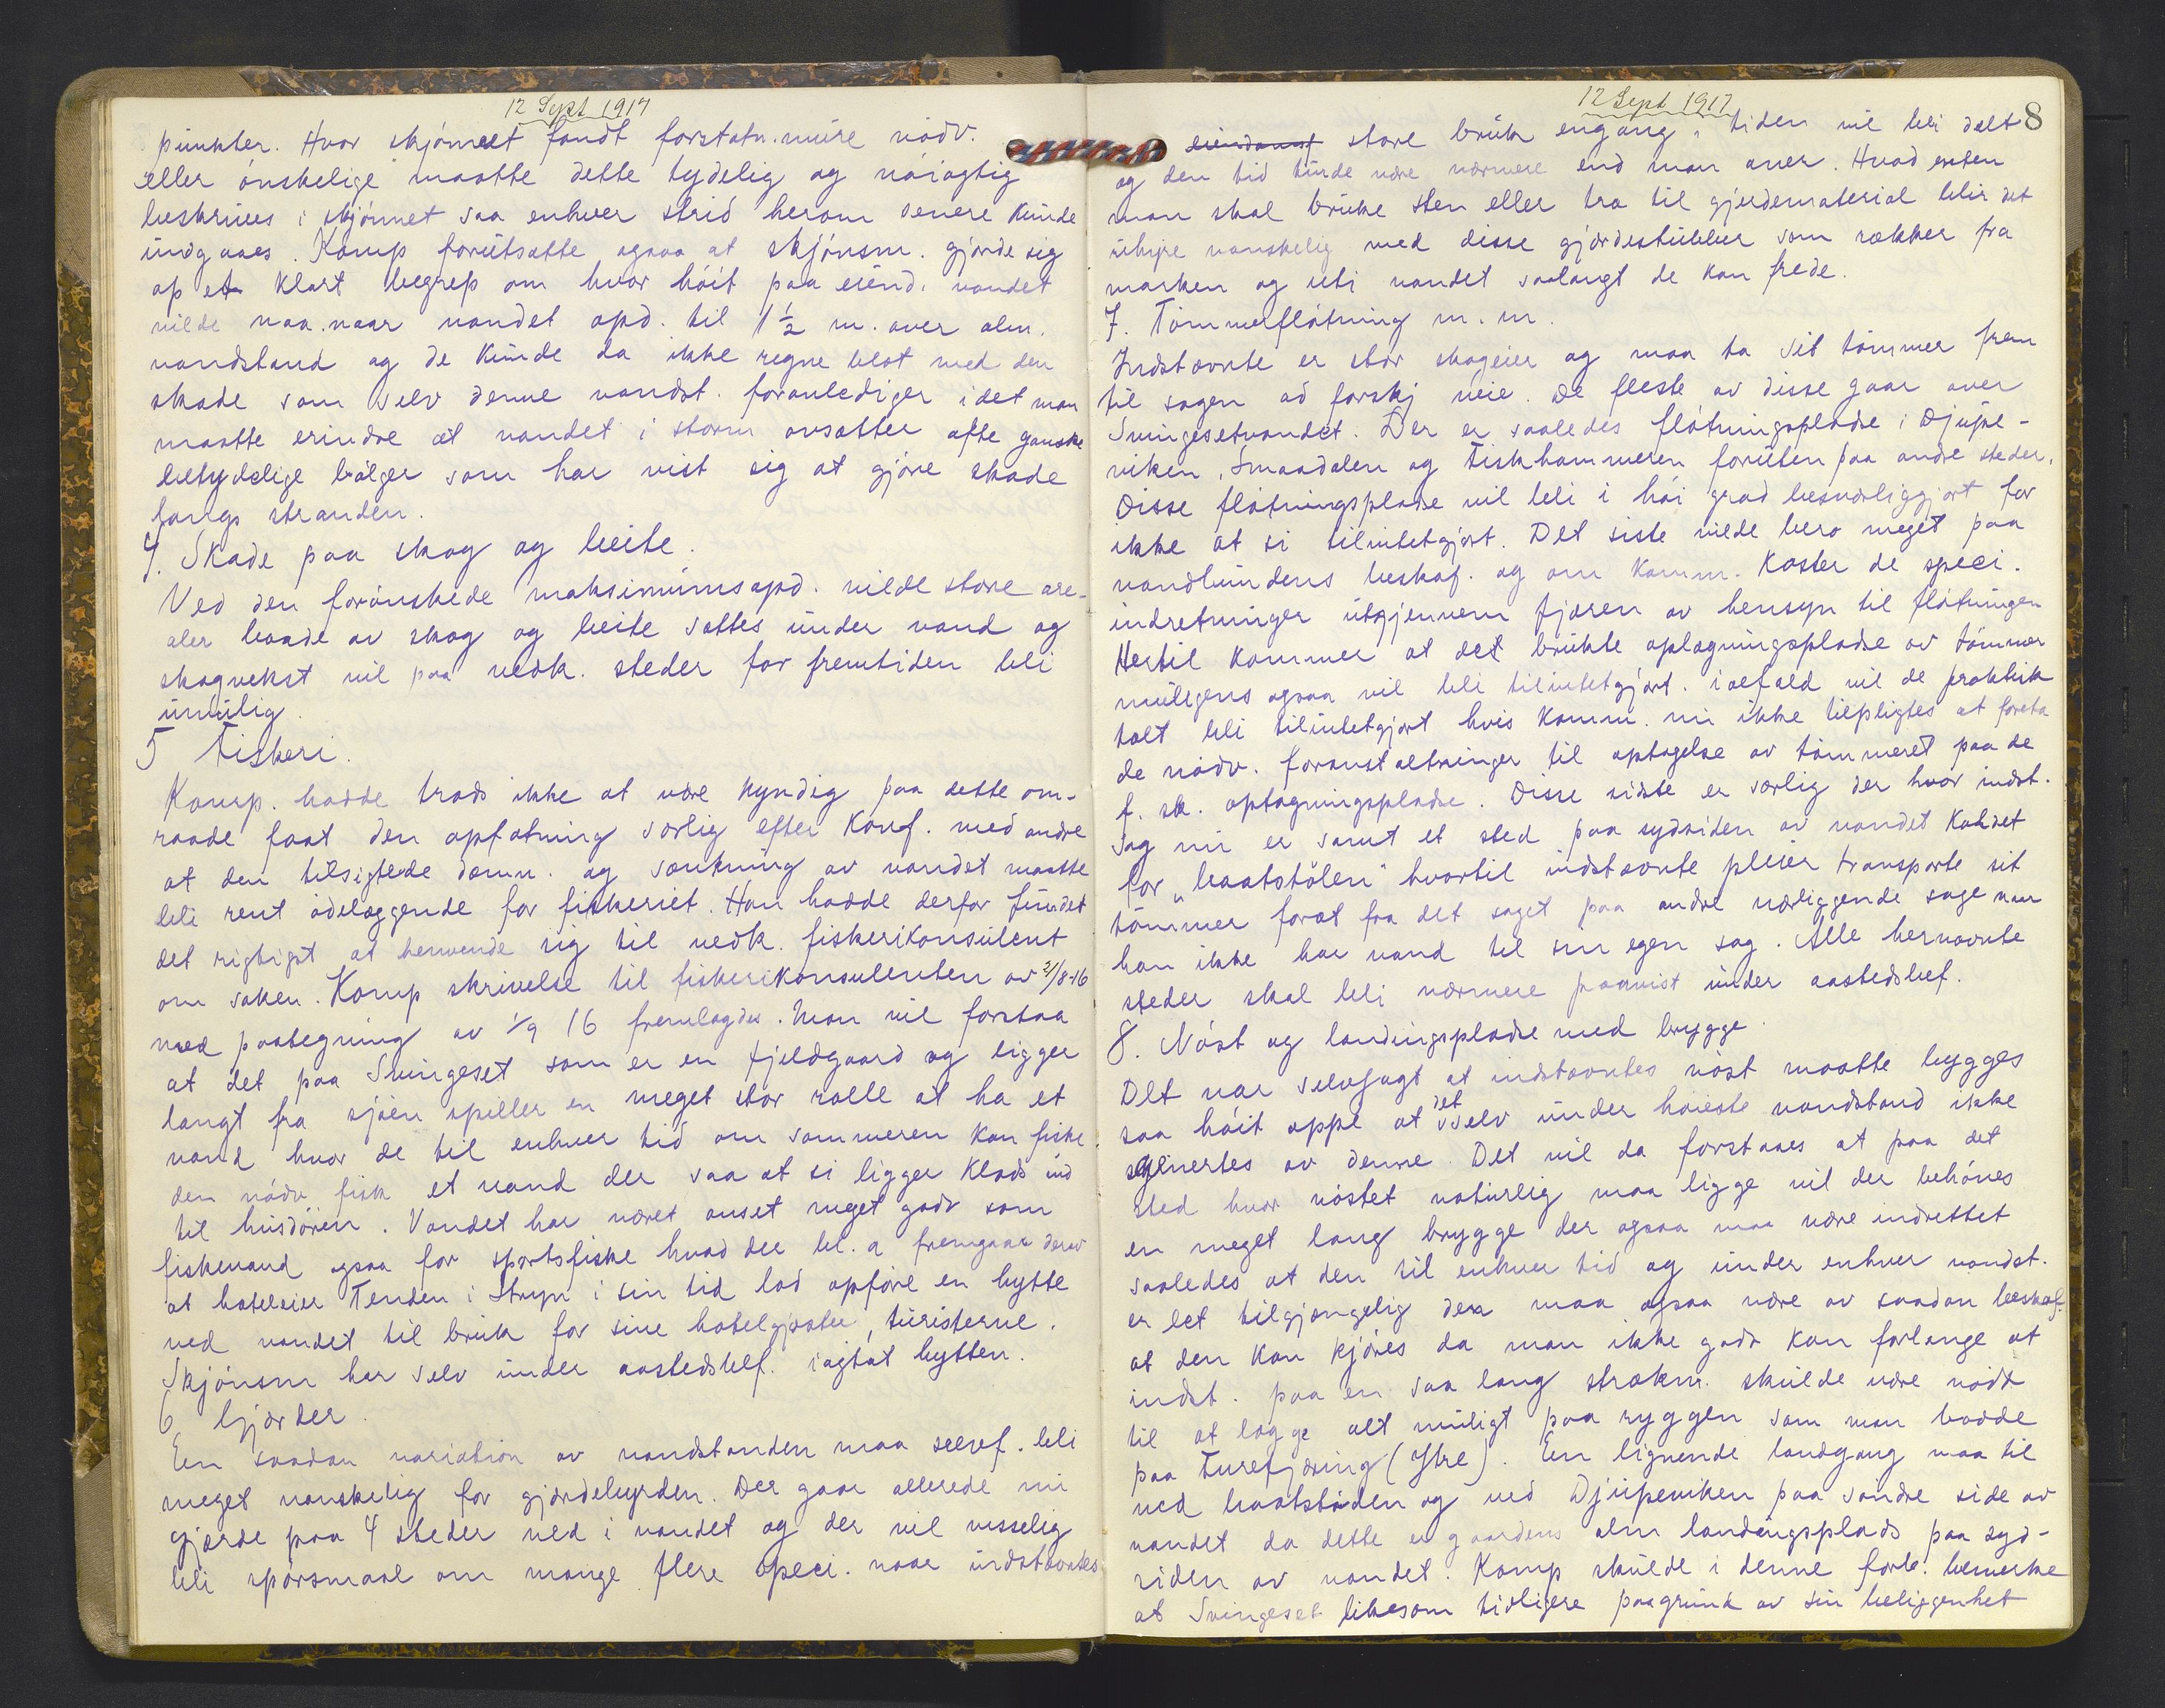 12 Sept 1917
punkter. Hvor skjønnet fandt forstøtn.mure nødv.
eller ønskelige maatte dette tydelig og nøiagtig
beskrives i skjønnet saa enhver strid herom senere kunde
undgaaes. Komp forutsatte ogsaa at skjønsm. gjorde sig
op et klart begrep om hvor høit paa eiend. vandet
vilde naa naar vandet opd. til 1½ m. over alm.
vandstand og de kunde da ikke regne blot med den
skade som selv denne vandst. foranlediger idet man
maatte erindre at vandet i storm avsætter ofte ganske
betydelige bølger som har vist sig at gjøre skade
langs stranden.
4. Skade paa skog og beite.
Ved den forønskede maksimumsopd. vilde store are-
aler baade av skog og beite sættes under vand og
skogvekst vil paa vedk. steder for fremtiden bli
umulig.
5 Fiskeri.
Komp. hadde trods ikke at være kyndig paa dette om-
raade faat den opfatning særlig efter konf. med andre
at den tilsigtede dæmn. og sænkning av vandet maatte
bli rent ødelæggende for fiskeriet. Han hadde derfor fundet
det rigtigst at henvende sig til vedk. fiskerikonsulent
om saken. Komp skrivelse til fiskerikonsulenten av 21/8-16
med paategning av 1/9 16 fremlagdes. Man vil forstaa
at det paa Svingeset som er en fjeldgaard og ligger
langt fra sjøen spiller en meget stor rolle at ha et
vand hvor de til enhver tid om sommeren kan fiske
den nødv fisk et vand der saa at si ligger klods ind
til husdøren. Vandet har været anset meget godt som
fiskevand ogsaa for sportsfiske hvad der bl. a fremgaar derav
at hoteleier Tenden i Stryn i sin tid lod opføre en hytte
ved vandet til bruk for sine hotelgjæster, turisterne.
Skjønsm har selv under aastedsbef. iagtat hytten.
6 Gjærder.
En saadan variation av vandstanden maa selvf. bli
meget vanskelig for gjærdebyrden. Der gaar allerede nu
gjærde paa 4 steder ned i vandet og der vil visselig
bli spørsmaal om mange flere speci. naar indstævntes
12 Sept 1917
8
eiendomf store bruk engang i tiden vil bli delt
og den tid turde være nærmere end man aner. Hvad enten
man skal bruke sten eller træ til gjerdematerial blir det
uhyre vanskelig med disse gjærdestubber som rækker fra
marken og uti vandet saalangt de kan frede.
7. Tømmerfløtning m. m.
Indstævnte er stor skogeier og maa ta sit tømmer frem
til sagen ad forskj veie. De fleste av disse gaar over
Svingesetvandet. Der er saaledes fløtningspladse i Djupe-
viken, Smaadalen og Fiskhammeren foruten paa andre steder.
Disse fløtningspladse vil bli i høi grad besværliggjort for
ikke at si tilintetgjort. Det siste vilde bero meget paa
vandbundens beskaf. og om komm. koster de speci.
indretninger utgjennem fjæren av hensyn til fløtningen
Hertil kommer at det brukte oplagningspladse av tømmer
muligens ogsaa vil bli tilintetgjort. ialfald vil de praktisk
talt bli tilintetgjort hvis komm. nu ikke tilpligtes at foreta
de nødv. foranstaltninger til optagelse av tømmeret paa de
f. sk. optagningspladse. Disse sidste er særlig der hvor indst.
sag nu er samt et sted paa sydsiden av vandet kaldet
for "baatstølen" hvortil indstævnte pleier transporte sit
tømmer forat fra det saget paa andre nærliggende sage naar
han ikke har vand til sin egen sag. Alle hernævnte
steder skal bli nærmere paavist under aastedsbef.
8. Nøst og landingspladse med brygge.
Det var selvsagt at indstævntes nøst maatte bygges
saa høit oppe at det selv under høieste vandstand ikke
genertes av denne. Det vil da forstaaes at paa det
sted hvor nøstet naturlig maa ligge vil der behøves
en meget lang brygge der ogsaa maa være indrettet
saaledes at den til enhver tid og under enhver vandst.
er let tilgjængelig den maa ogsaa være av saadan beskaf.
at den kan kjøres da man ikke godt kan forlange at
indst. paa en saa lang strækn. skulde være nødt
til at lægge alt muligt paa ryggen som man hadde
paa Turefjæring (Ytre). En lignende landgang maa til
ved baatstøden og ved Djupeviken paa søndre side av
vandet da dette er gaardens alm landingsplads paa syd-
siden av vandet. Komp skulde i denne forb. bemerke
at Svingeset likesom tidligere paagrund av sin beliggenhet